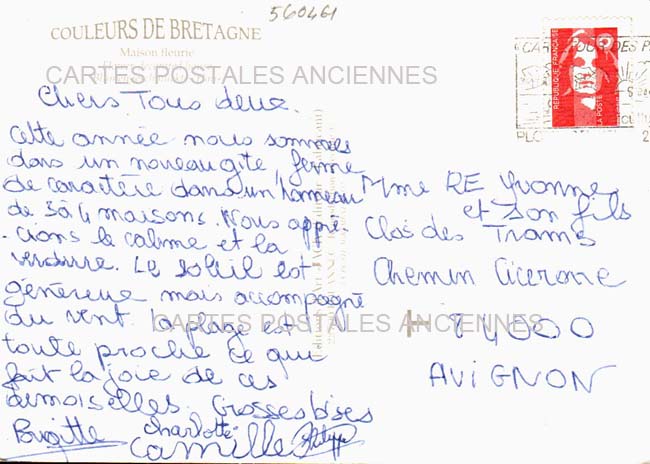 560461
COULEURS DE BRETAGNE
Maison fleurie
CARTES POSTALES ANCIENNES
Chers Tous deux.
Cette année nous sommes
dans un nouveau gîte, ferme
de caractère dans un hameau
de 3 à 4 maisons. Nous appré-
-cions le calme et la
verdure. Le soleil est
généreux mais accompagné
du vent. La plage est
toute proche ce qui
fait la joie de ces
demoiselles. Grosses bises
Brigitte Charlotte
Camille Philippe
Mme RE Yvonne
et son fils
Clos des Trams
Chemin Cicerone
84000
AVIGNON
CARTES POSTALES ANCIENNES
REPUBLIQUE FRANÇAISE
LA POSTE